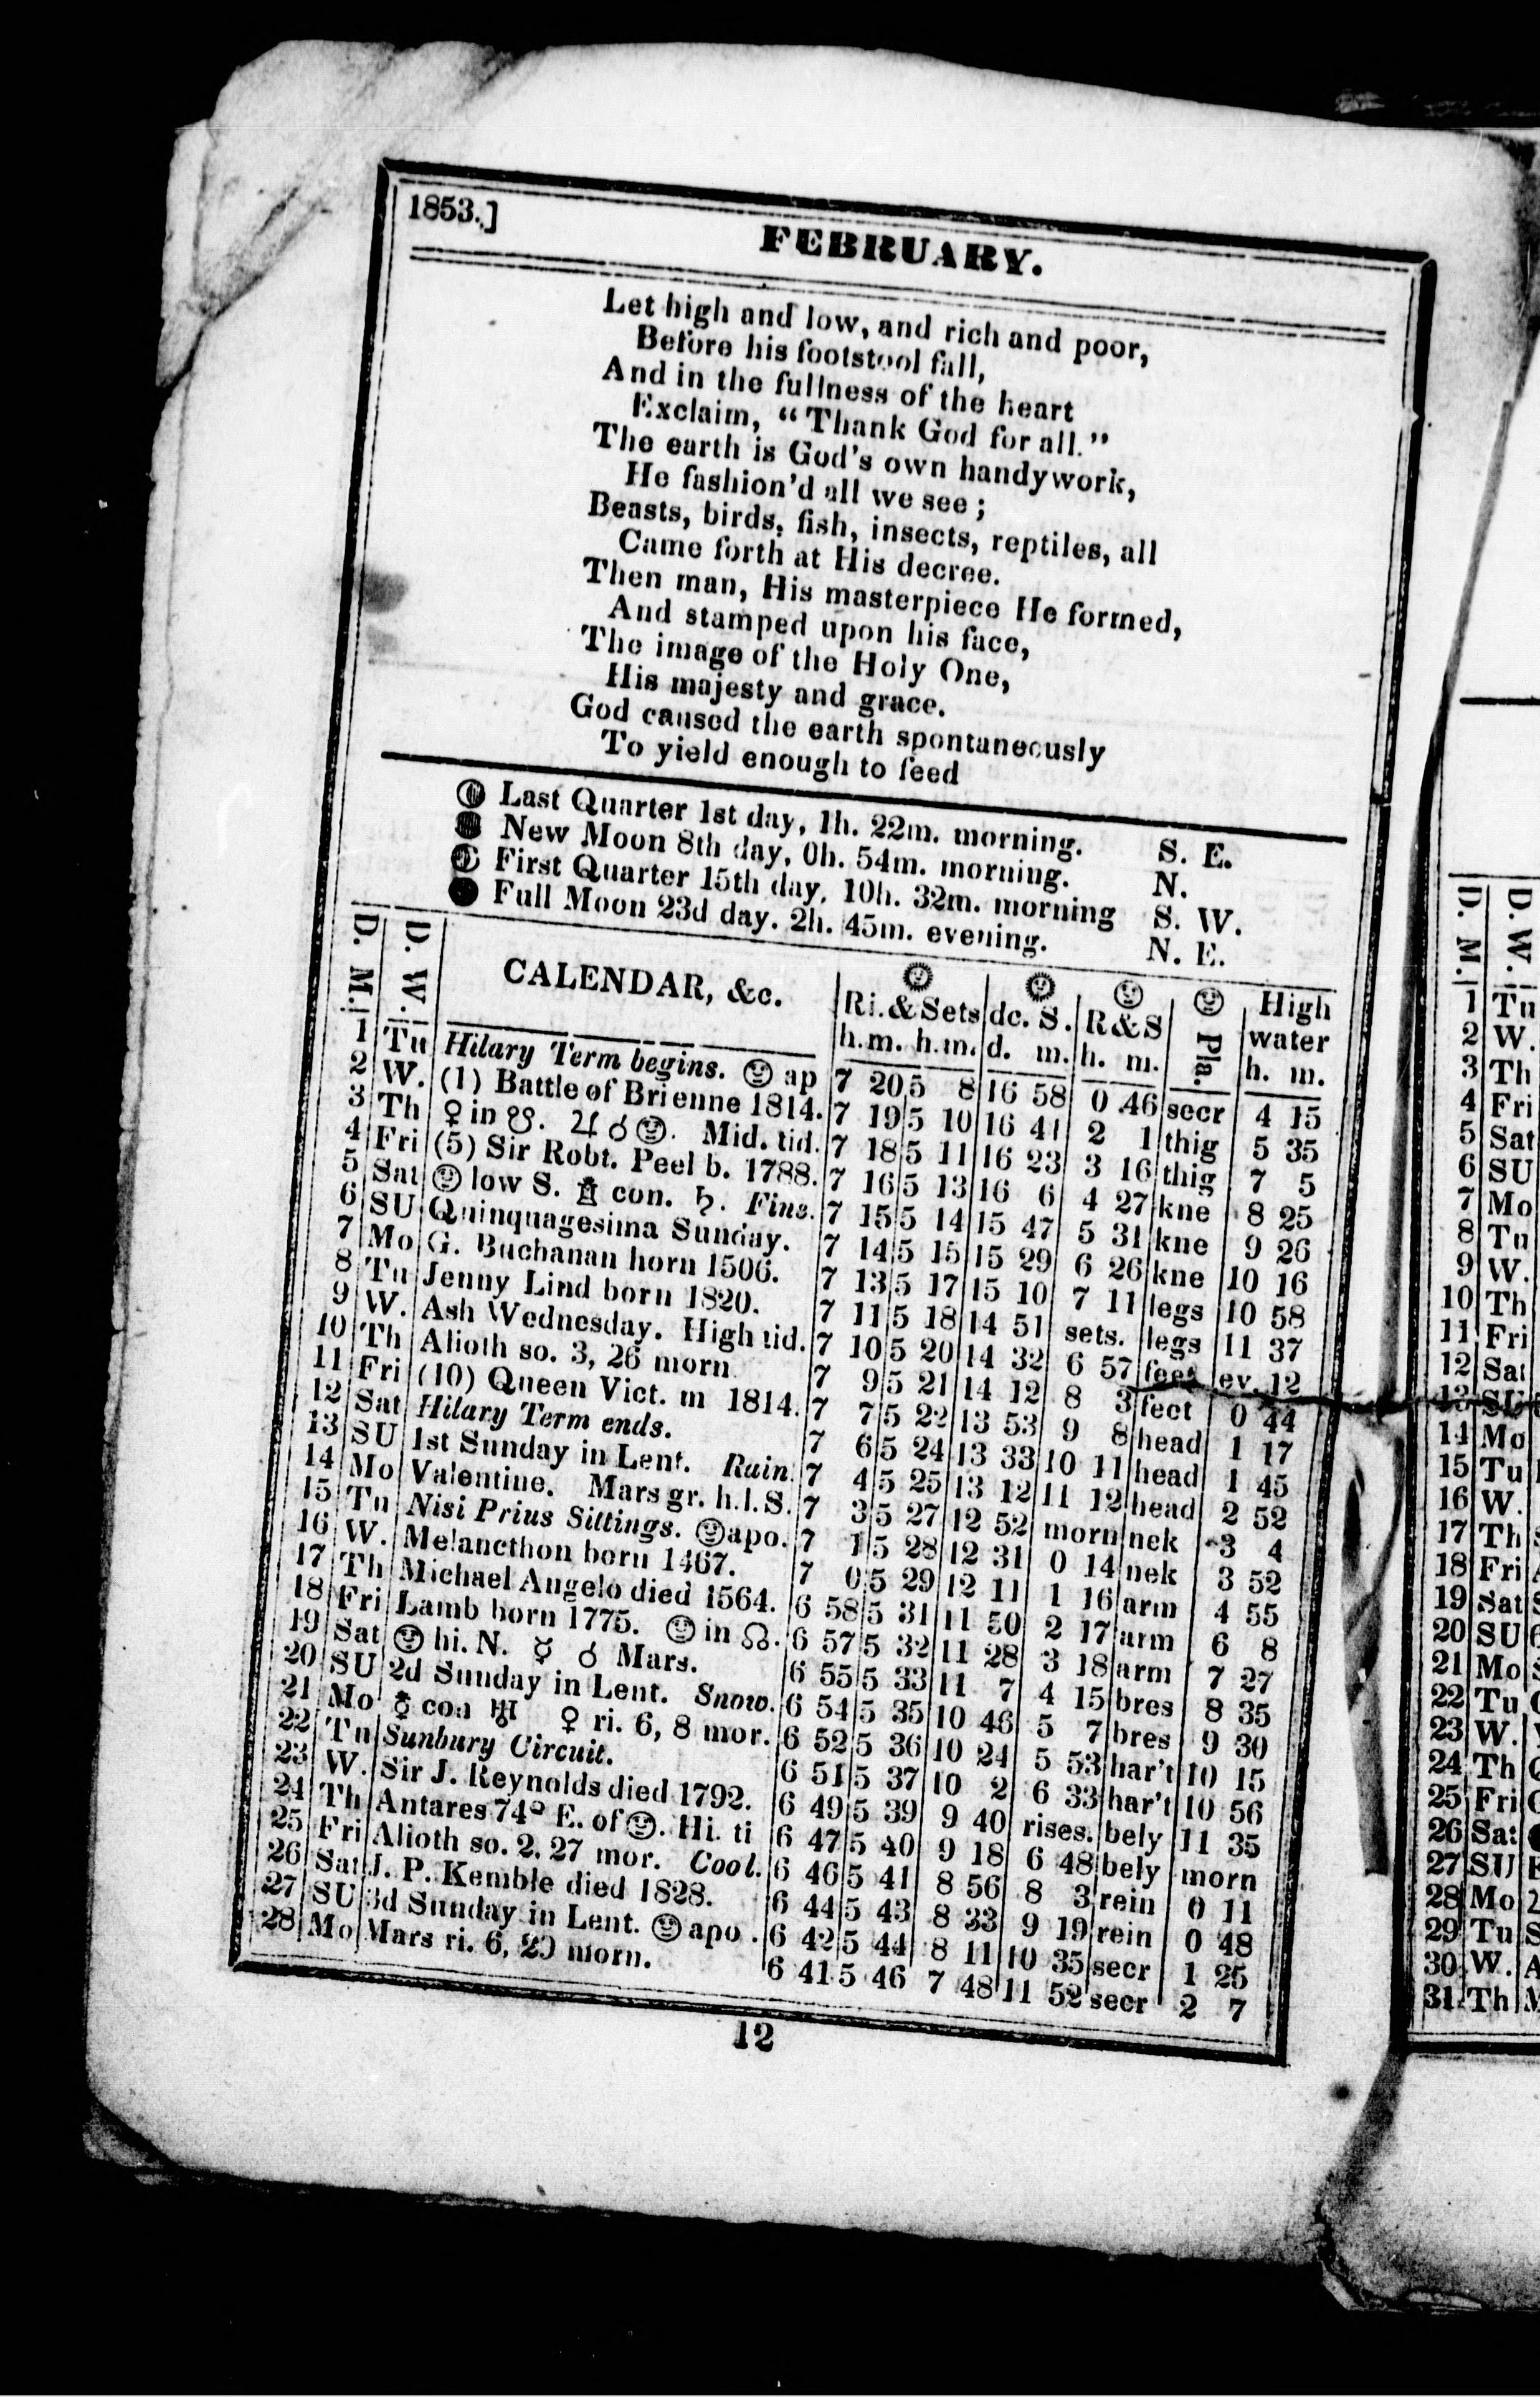 1853.]
FEBRUARY.
Let high and low, and rich and poor,
Before his footstool fall,
And in the fullness of the heart
Exclaim, "Thank God for all."
The earth is God's own handywork,
He fashion'd all we see;
Beasts, birds, fish, insects, reptiles, all
Came forth at His decree.
Then man, His masterpiece He formed,
And stamped upon his face,
The image of the Holy One,
His majesty and grace.
God caused the earth spontaneously
To yield enough to feed
Last Quarter 1st day, 1h. 22m. morning. S. E.
New Moon 8th day, 0h. 54m. morning. N.
First Quarter 15th day, 10h. 32m. morning S. W.
Full Moon 23d day. 2h. 45m. evening. N. E.
D. M. D. W. CALENDAR, &c. Ri.&Sets dc. S. R&S Pla. High water
h.m. h.m. d. m. h. m. h. m.
1 Tu Hilary Term begins. ap 7 20 5 8 16 58 0 46 secr 4 15
2 W. (1) Battle of Brienne 1814. 7 19 5 10 16 41 2 1 thig 5 35
3 Th ♀ in ☋. ♃ ☌ ☺. Mid. tid. 7 18 5 11 16 23 3 16 thig 7 5
4 Fri (5) Sir Robt. Peel b. 1788. 7 16 5 13 16 6 4 27 kne 8 25
5 Sat ☺ low S. con. ♄. Fine. 7 15 5 14 15 47 5 31 kne 9 26
6 SU Quinquagesima Sunday. 7 14 5 15 15 29 6 26 kne 10 16
7 Mo G. Buchanan born 1506. 7 13 5 17 15 10 7 11 legs 10 58
8 Tu Jenny Lind born 1820. 7 11 5 18 14 51 sets. legs 11 37
9 W. Ash Wednesday. High tid. 7 10 5 20 14 32 6 57 feet ev. 12
10 Th Alioth so. 3, 26 morn 7 9 5 21 14 12 8 3 feet 0 44
11 Fri (10) Queen Vict. m 1814. 7 7 5 22 13 53 9 8 head 1 17
12 Sat Hilary Term ends. 7 6 5 24 13 33 10 11 head 1 45
13 SU 1st Sunday in Lent. Rain. 7 4 5 25 13 12 11 12 head 2 52
14 Mo Valentine. Mars gr. h.l.S. 7 3 5 27 12 52 morn nek 3 4
15 Tu Nisi Prius Sittings. ☺apo. 7 1 5 28 12 31 0 14 nek 3 52
16 W. Melancthon born 1467. 7 0 5 29 12 11 1 16 arm 4 55
17 Th Michael Angelo died 1564. 6 58 5 31 11 50 2 17 arm 6 8
18 Fri Lamb born 1775. ☺ in ☊. 6 57 5 32 11 28 3 18 arm 7 27
19 Sat ☺ hi. N. ☿ ☌ Mars. 6 55 5 33 11 7 4 15 bres 8 35
20 SU 2d Sunday in Lent. Snow. 6 54 5 35 10 46 5 7 bres 9 30
21 Mo con ♅ ♀ ri. 6, 8 mor. 6 52 5 36 10 24 5 53 har't 10 15
22 Tu Sunbury Circuit. 6 51 5 37 10 2 6 33 har't 10 56
23 W. Sir J. Reynolds died 1792. 6 49 5 39 9 40 rises. bely 11 35
24 Th Antares 74° E. of ☺. Hi. ti 6 47 5 40 9 18 6 48 bely morn
25 Fri Alioth so. 2, 27 mor. Cool. 6 46 5 41 8 56 8 3 rein 0 11
26 Sat J. P. Kemble died 1828. 6 44 5 43 8 33 9 19 rein 0 48
27 SU 3d Sunday in Lent. ☺ apo. 6 42 5 44 8 11 10 35 secr 1 25
28 Mo Mars ri. 6, 20 morn. 6 41 5 46 7 48 11 52 secr 2 7
12
D. M. D. W.
1 Tu
2 W.
3 Th
4 Fri
5 Sat
6 SU
7 Mo
8 Tu
9 W.
10 Th
11 Fri
12 Sat
13 SU
14 Mo
15 Tu
16 W.
17 Th
18 Fri
19 Sat
20 SU
21 Mo
22 Tu
23 W.
24 Th
25 Fri
26 Sat
27 SU
28 Mo
29 Tu
30 W.
31 Th